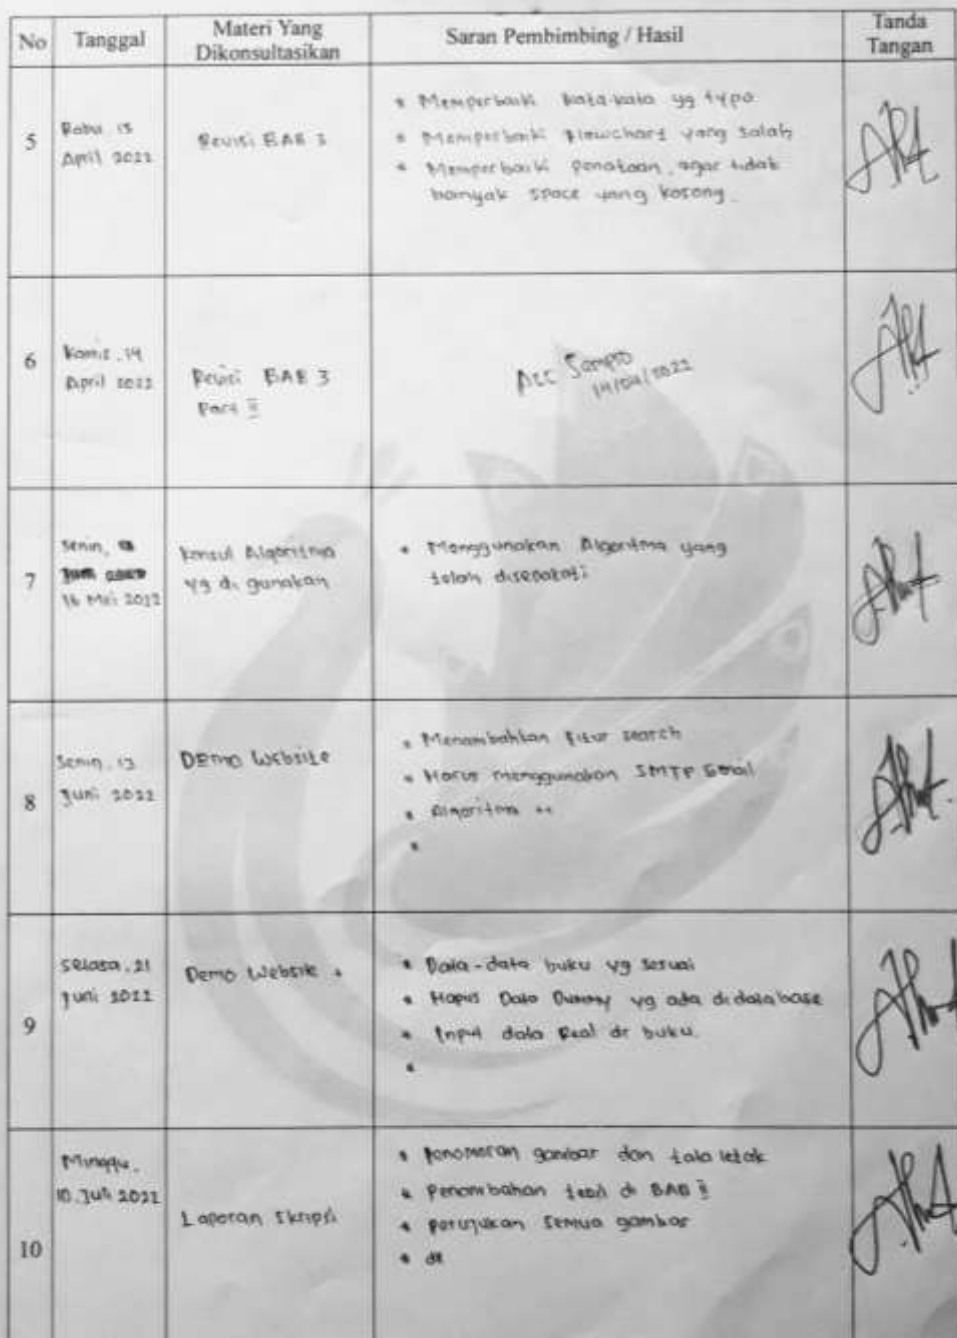 No Tanggal Materi Yang Dikonsultasikan Saran Pembimbing / Hasil Tanda Tangan
5
Rabu 13
April 2022
Revisi BAB 3
• Memperbaiki kata-kata yg typo
• Memperbaiki flowchart yang salah
• Memperbaiki penataan, agar tidak
banyak space yang kosong.
6
Kamis, 14
April 2022
Revisi BAB 3
Part II
Acc Sempro
14/04/2022
7
Senin,
16 Mei 2022
Konsul Algoritma
yg di gunakan
• Menggunakan Algoritma yang
telah disepakati
8
Senin, 13
Juni 2022
Demo Website
• Menambahkan fitur search
• Harus menggunakan SMTP Gmail
• Algoritma ++
•
9
Selasa, 21
Juni 2022
Demo Website +
• Data-data buku yg sesuai
• Hapus Data Dummy yg ada di database
• Input data Real dr buku.
•
10
Minggu,
10. Juli 2022
Laporan Skripsi
• Penomoran gambar dan tata letak
• Penambahan teori di BAB II
• perujukan semua gambar
•